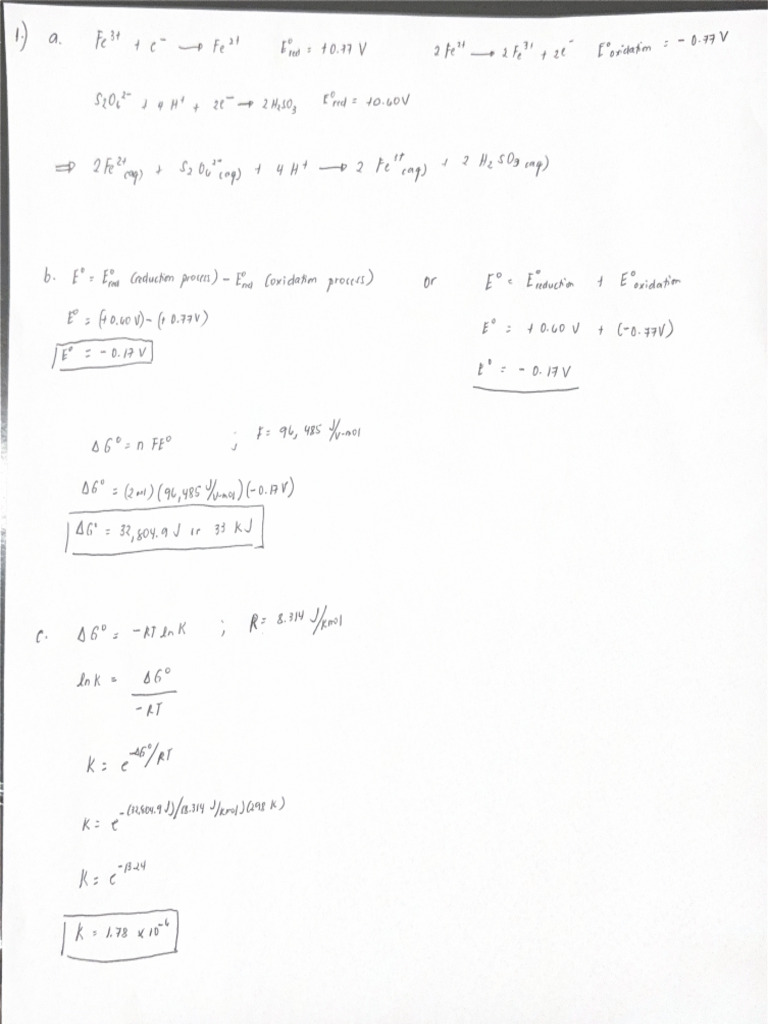 1.) a. Fe³⁺ + e⁻ → Fe²⁺ E°red = +0.77 V 2 Fe²⁺ → 2 Fe³⁺ + 2e⁻ E°oxidation = -0.77 V
S₂O₆²⁻ + 4 H⁺ + 2e⁻ → 2 H₂SO₃ E°red = +0.60V
⇒ 2 Fe²⁺(aq) + S₂O₆²⁻(aq) + 4 H⁺ → 2 Fe³⁺(aq) + 2 H₂SO₃(aq)
b. E° = E°red (reduction process) - E°red (oxidation process) or E° = E°reduction + E°oxidation
E° = (+0.60 V) - (+0.77V) E° = +0.60 V + (-0.77V)
E° = -0.17 V E° = -0.17 V
ΔG° = n FE° ; F = 96,485 J/V-mol
ΔG° = (2 mol)(96,485 J/V-mol)(-0.17 V)
ΔG° = 32,804.9 J or 33 kJ
c. ΔG° = -RT ln K ; R = 8.314 J/Kmol
ln K = ΔG°
-RT
K = e^-ΔG°/RT
K = e^-(32,804.9 J)/(8.314 J/Kmol)(298 K)
K = e^-13.24
K = 1.78 × 10⁻⁶